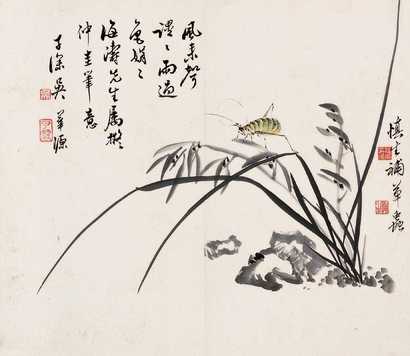 風來聲
謖〻雨過
色娟〻
海濤先生屬擬
仲圭筆意
子深吳華源
慎生補草蟲